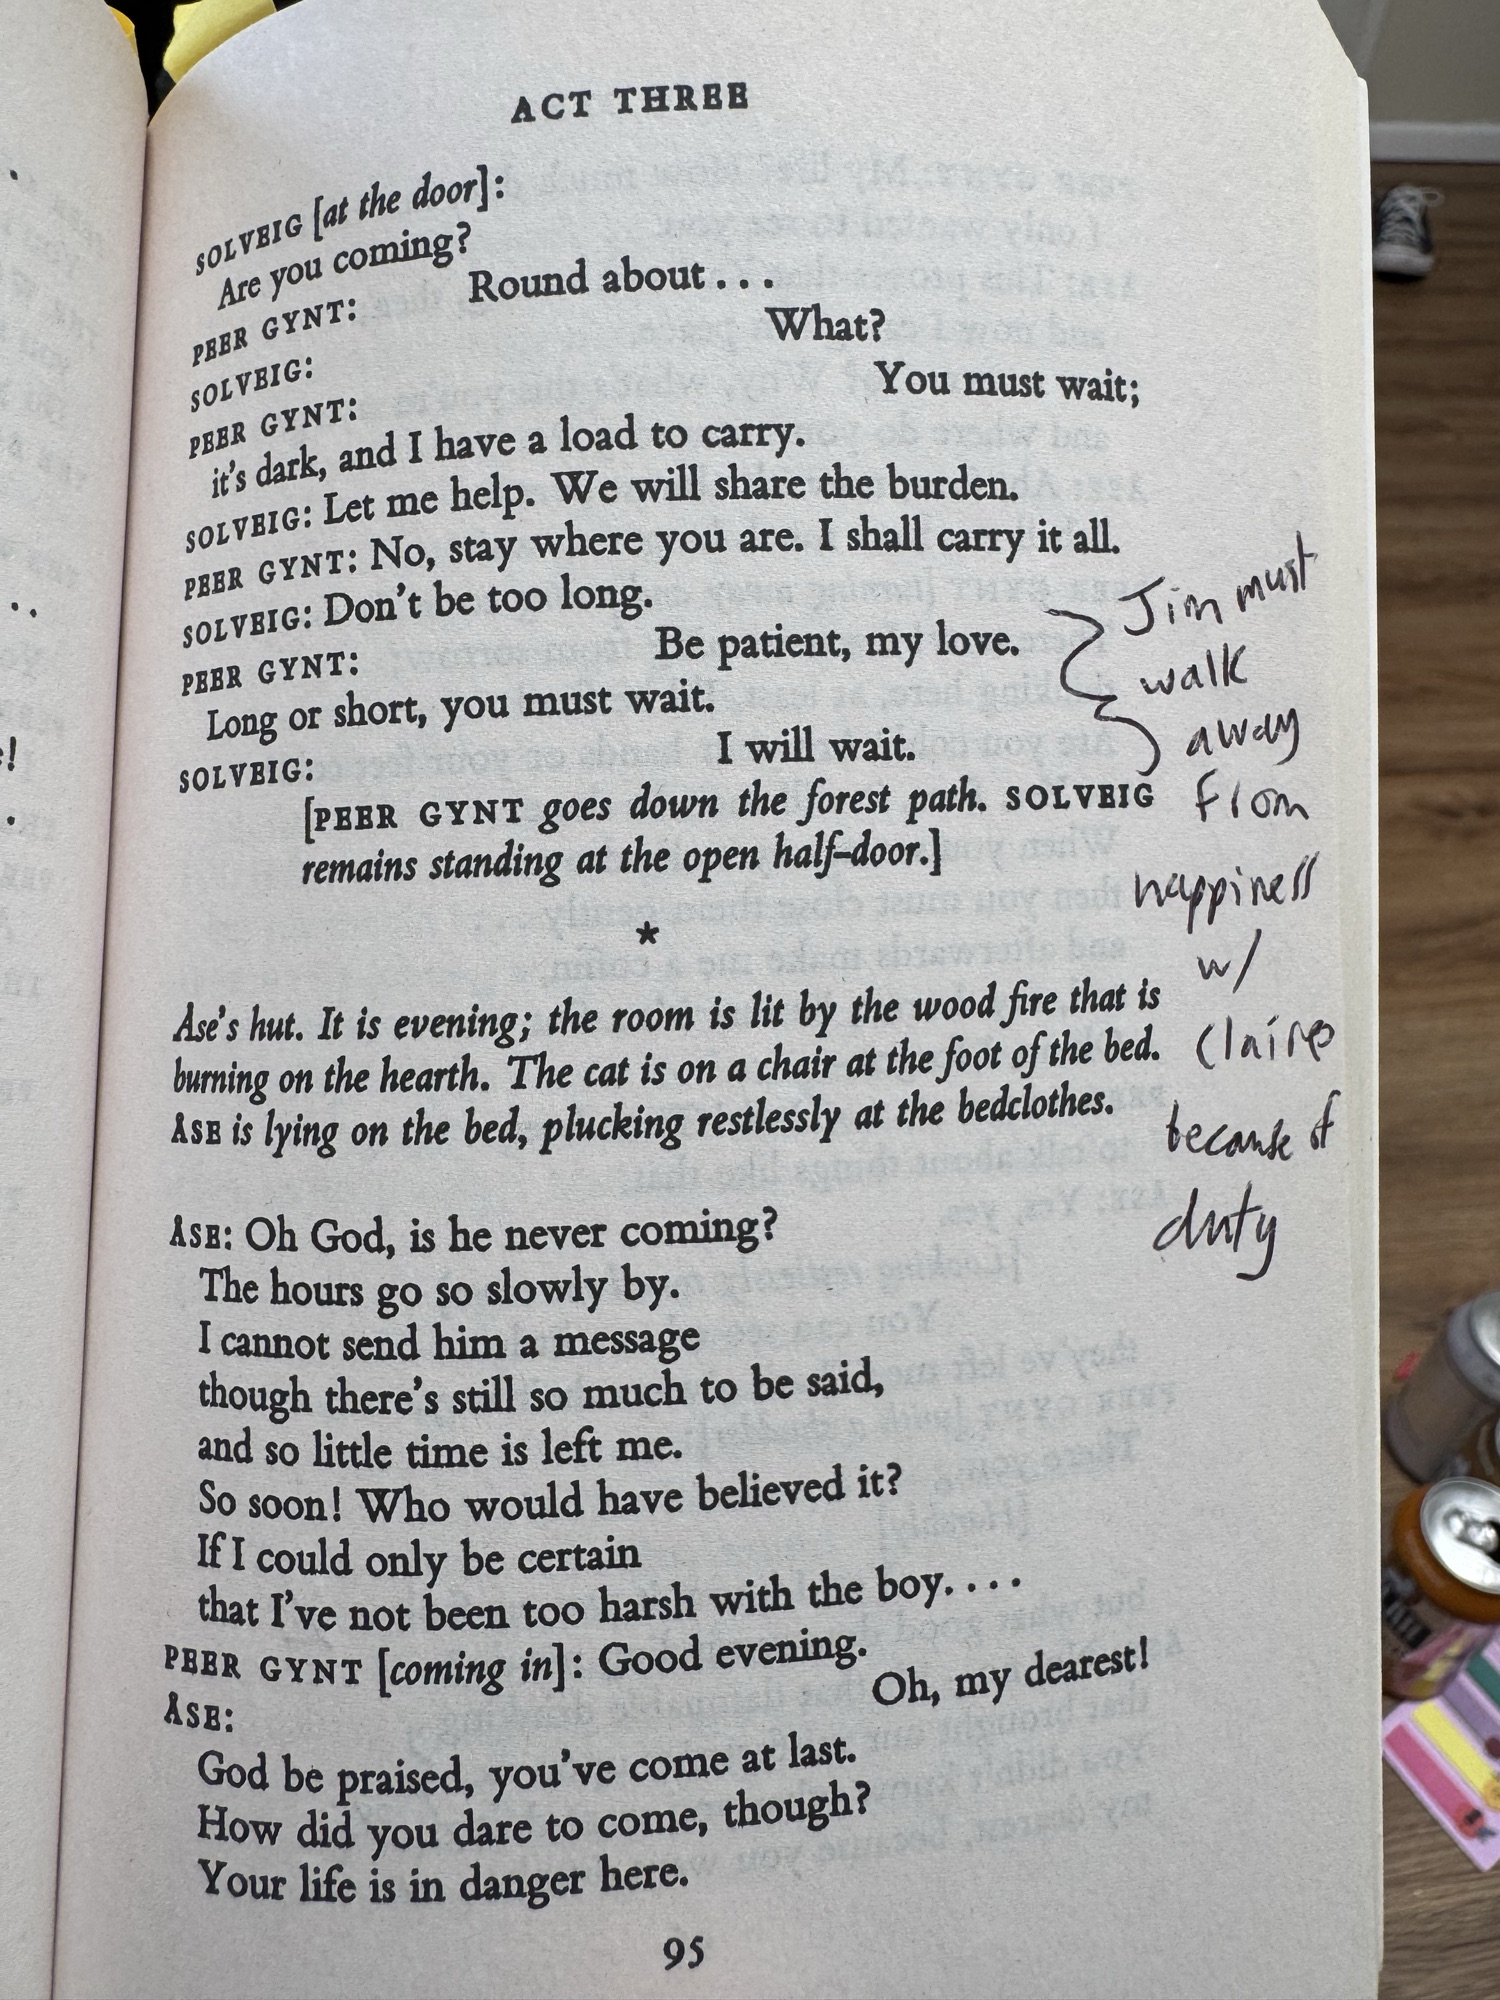 ACT THREE
SOLVEIG [at the door]:
Are you coming?
PEER GYNT: Round about...
SOLVEIG: What?
PEER GYNT: You must wait;
it's dark, and I have a load to carry.
SOLVEIG: Let me help. We will share the burden.
PEER GYNT: No, stay where you are. I shall carry it all.
SOLVEIG: Don't be too long.
PEER GYNT: Be patient, my love.
Long or short, you must wait.
SOLVEIG: I will wait.
[PEER GYNT goes down the forest path. SOLVEIG
remains standing at the open half-door.]
*
Åse's hut. It is evening; the room is lit by the wood fire that is
burning on the hearth. The cat is on a chair at the foot of the bed.
ÅSE is lying on the bed, plucking restlessly at the bedclothes.
ÅSE: Oh God, is he never coming?
The hours go so slowly by.
I cannot send him a message
though there's still so much to be said,
and so little time is left me.
So soon! Who would have believed it?
If I could only be certain
that I've not been too harsh with the boy....
PEER GYNT [coming in]: Good evening.
ÅSE: Oh, my dearest!
God be praised, you've come at last.
How did you dare to come, though?
Your life is in danger here.
95
Jim must
walk
away
from
happiness
w/
Claire
because of
duty